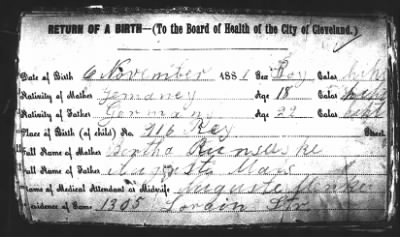 RETURN OF A BIRTH—(To the Board of Health of the City of Cleveland.)
Date of Birth 6 November 1881 Sex Boy Color
Nativity of Mother Germaney Age 18 Color
Nativity of Father Germany Age 22 Color
Place of Birth (of child) No. 916 Key Street
Full Name of Mother Bertha
Full Name of Father August
Name of Medical Attendant or Midwife Auguste
Residence of Same 1305 Lorain Str